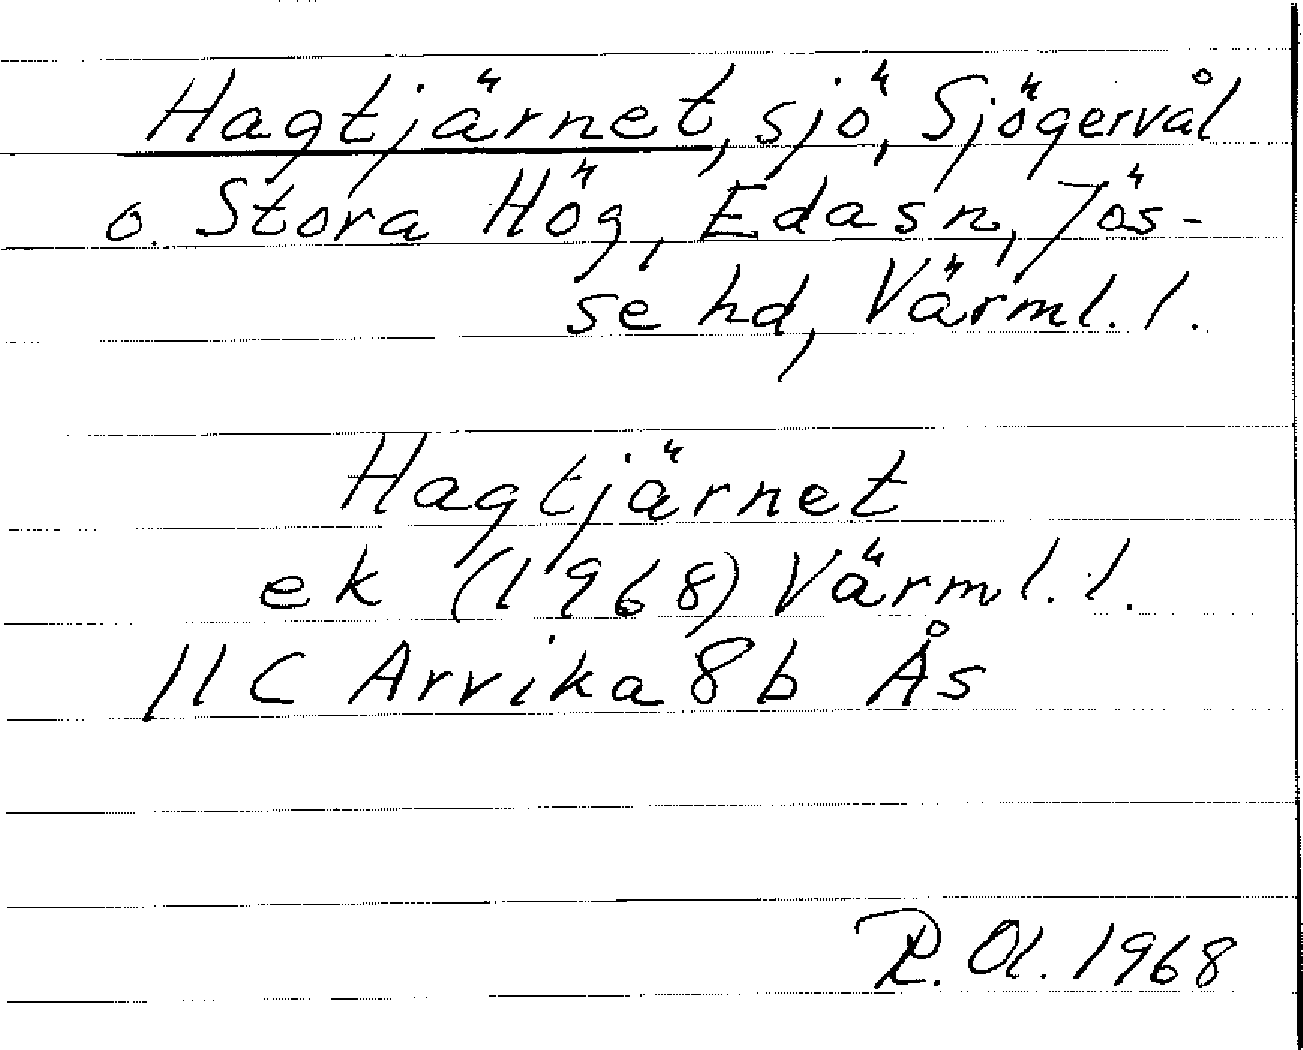 Hagtjärnet, sjö, Sjögervål
o. Stora Hög, Eda sn, Jös-
se hd, Värml. l.
Hagtjärnet
ek (1968) Värml. l.
11 C Arvika 8 b Ås
R. Ol. 1968